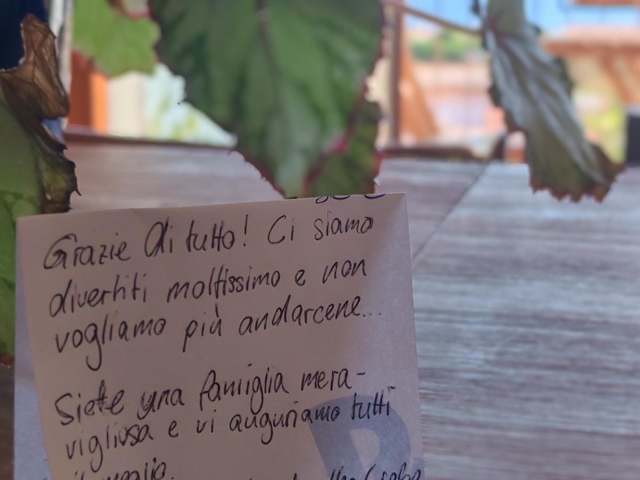 Grazie di tutto! Ci siamo
divertiti moltissimo e non
vogliamo più andarcene...
Siete una famiglia mera-
vigliosa e vi auguriamo tutti
il meglio.